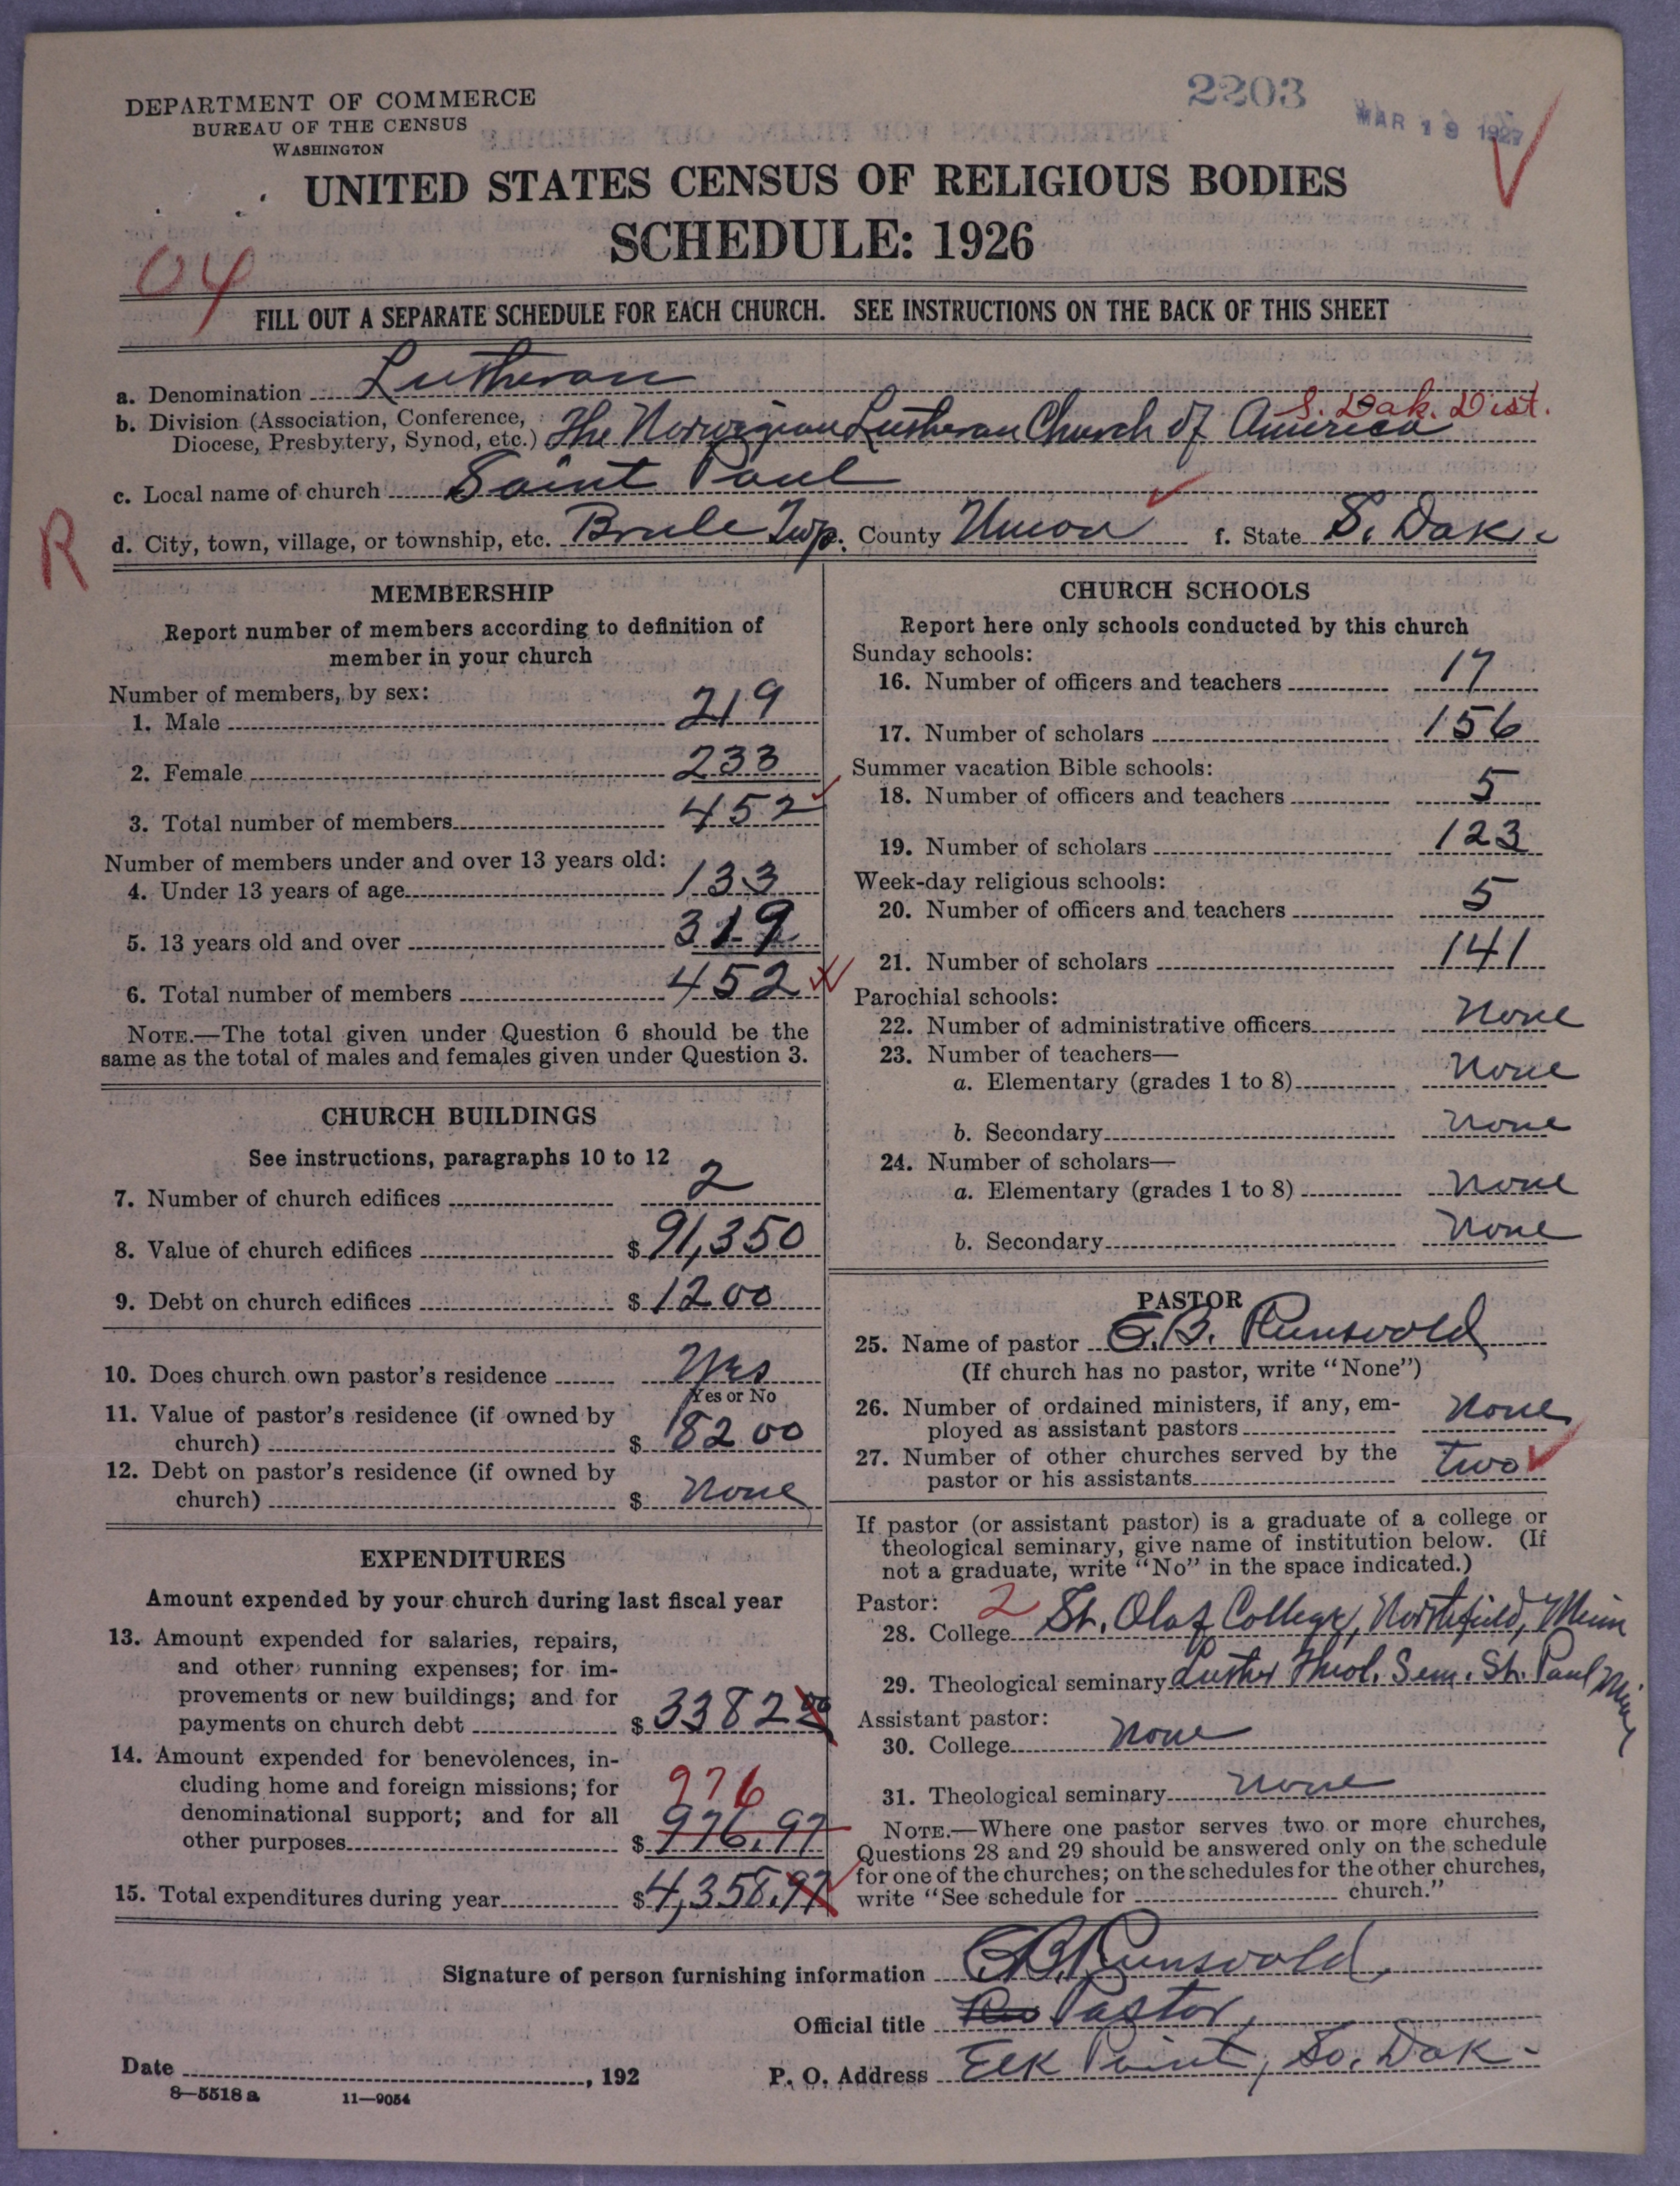 2203
MAR 19 1927
DEPARTMENT OF COMMERCE
BUREAU OF THE CENSUS
WASHINGTON
UNITED STATES CENSUS OF RELIGIOUS BODIES
SCHEDULE: 1926
04
FILL OUT A SEPARATE SCHEDULE FOR EACH CHURCH. SEE INSTRUCTIONS ON THE BACK OF THIS SHEET
a. Denomination Lutheran
S. Dak. Dist.
b. Division (Association, Conference, Diocese, Presbytery, Synod, etc.) The Norwegian Lutheran Church of America
c. Local name of church Saint Paul
R
d. City, town, village, or township, etc. Brule Twp. County Union f. State S. Dak.
MEMBERSHIP
Report number of members according to definition of
member in your church
Number of members, by sex:
1. Male 219
2. Female 233
3. Total number of members 452
Number of members under and over 13 years old:
4. Under 13 years of age 133
5. 13 years old and over 319
6. Total number of members 452
NOTE.—The total given under Question 6 should be the
same as the total of males and females given under Question 3.
CHURCH BUILDINGS
See instructions, paragraphs 10 to 12
7. Number of church edifices 2
8. Value of church edifices $ 91,350
9. Debt on church edifices $ 1200
10. Does church own pastor's residence Yes
Yes or No
11. Value of pastor's residence (if owned by
church) $ 8200
12. Debt on pastor's residence (if owned by
church) $ None
EXPENDITURES
Amount expended by your church during last fiscal year
13. Amount expended for salaries, repairs,
and other running expenses; for im-
provements or new buildings; and for
payments on church debt $ 3382 00
14. Amount expended for benevolences, in-
cluding home and foreign missions; for
976
denominational support; and for all
other purposes $ 976.97
15. Total expenditures during year $ 4,358.97
CHURCH SCHOOLS
Report here only schools conducted by this church
Sunday schools:
16. Number of officers and teachers 17
17. Number of scholars 156
Summer vacation Bible schools:
18. Number of officers and teachers 5
19. Number of scholars 123
Week-day religious schools:
20. Number of officers and teachers 5
21. Number of scholars 141
Parochial schools:
22. Number of administrative officers None
23. Number of teachers—
a. Elementary (grades 1 to 8) None
b. Secondary None
24. Number of scholars—
a. Elementary (grades 1 to 8) None
b. Secondary None
PASTOR
25. Name of pastor G.B. Runsvold
(If church has no pastor, write "None")
26. Number of ordained ministers, if any, em-
ployed as assistant pastors None
27. Number of other churches served by the
pastor or his assistants two
If pastor (or assistant pastor) is a graduate of a college or
theological seminary, give name of institution below. (If
not a graduate, write "No" in the space indicated.)
Pastor: 2
28. College St. Olaf College, Northfield, Minn
29. Theological seminary Luther Theol. Sem. St. Paul Minn
Assistant pastor:
30. College None
31. Theological seminary None
NOTE.—Where one pastor serves two or more churches,
Questions 28 and 29 should be answered only on the schedule
for one of the churches; on the schedules for the other churches,
write "See schedule for church."
Signature of person furnishing information G.B. Runsvold,
Official title Pastor,
Date , 192 P. O. Address Elk Point, So. Dak.
8—5518 a 11—9054